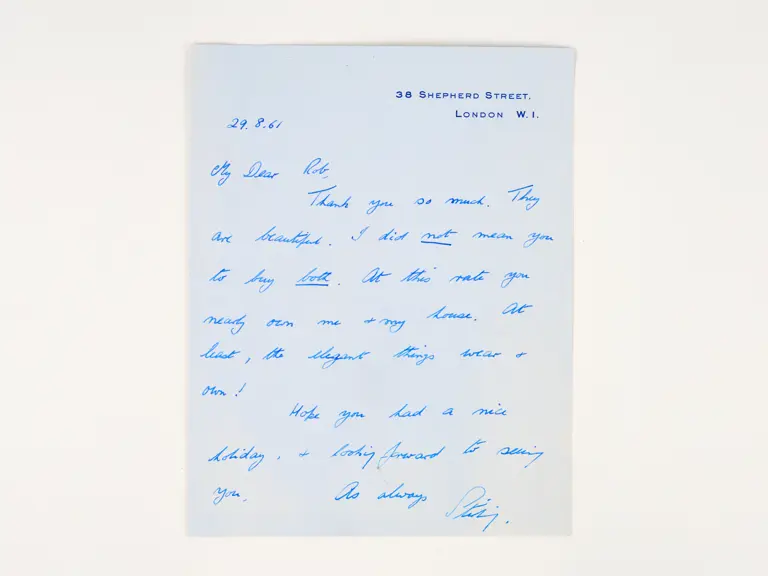 38 SHEPHERD STREET.
LONDON W.1.
29.8.61
My Dear Rob,
Thank you so much. They
are beautiful. I did not mean you
to buy both. At this rate you
nearly own me & my house. At
least, the elegant things wear &
own!
Hope you had a nice
holiday, & looking forward to seeing
you.
As always